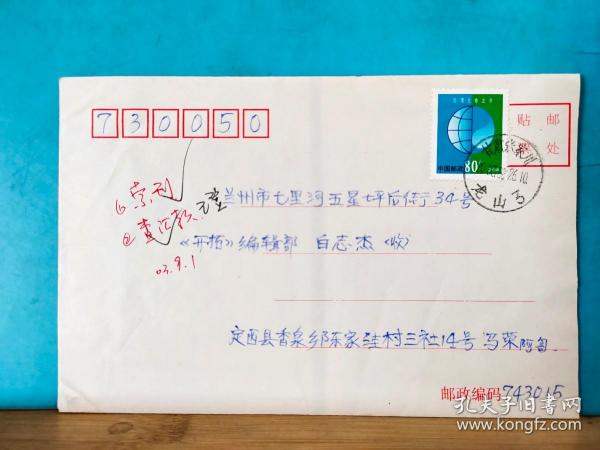 730050
贴邮
票处
保护生物之水
中国邮政
80分
①索刊
②查汇款
03.9.1
兰州市七里河五星坪后街34号
《开拓》编辑部 白志杰(收)
定西县香泉乡陈家洼村三社14号 马荣
邮政编码 743015
孔夫子旧书网
www.kongfz.com